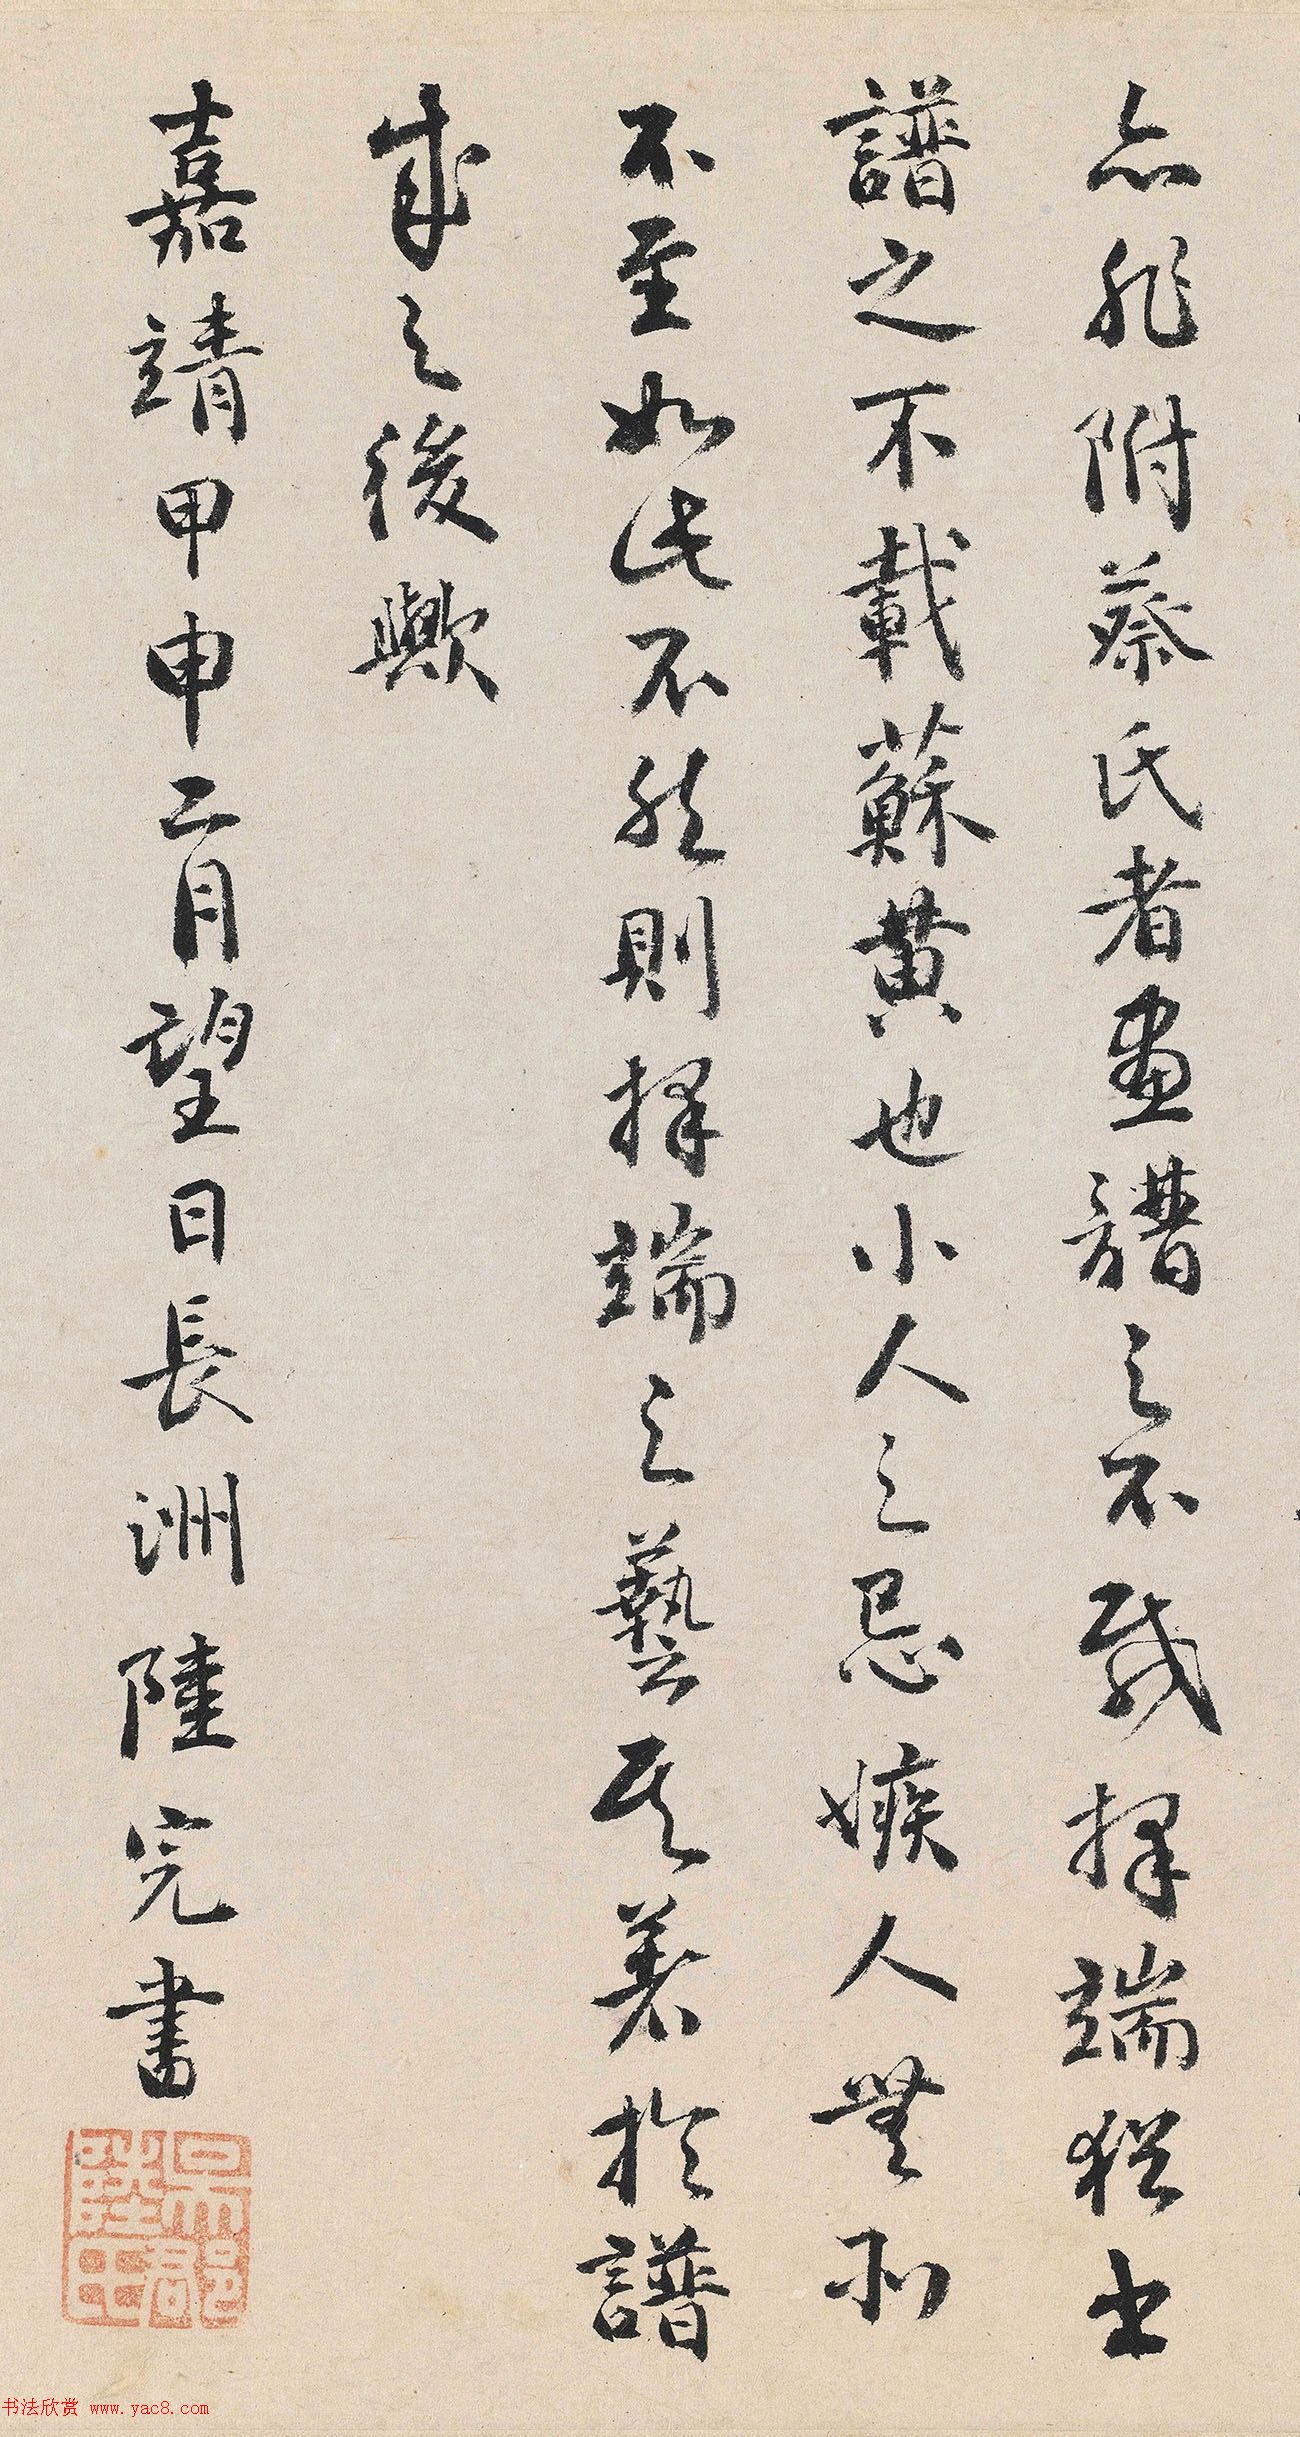 亦非附蔡氏者畫譜之不載擇端猶書
譜之不載蘇黃也小人之忌嫉人無所
不至如此不然則擇端之藝其著於譜
成之後歟
嘉靖甲申二月望日長洲陸完書
书法欣赏 www.yac8.com